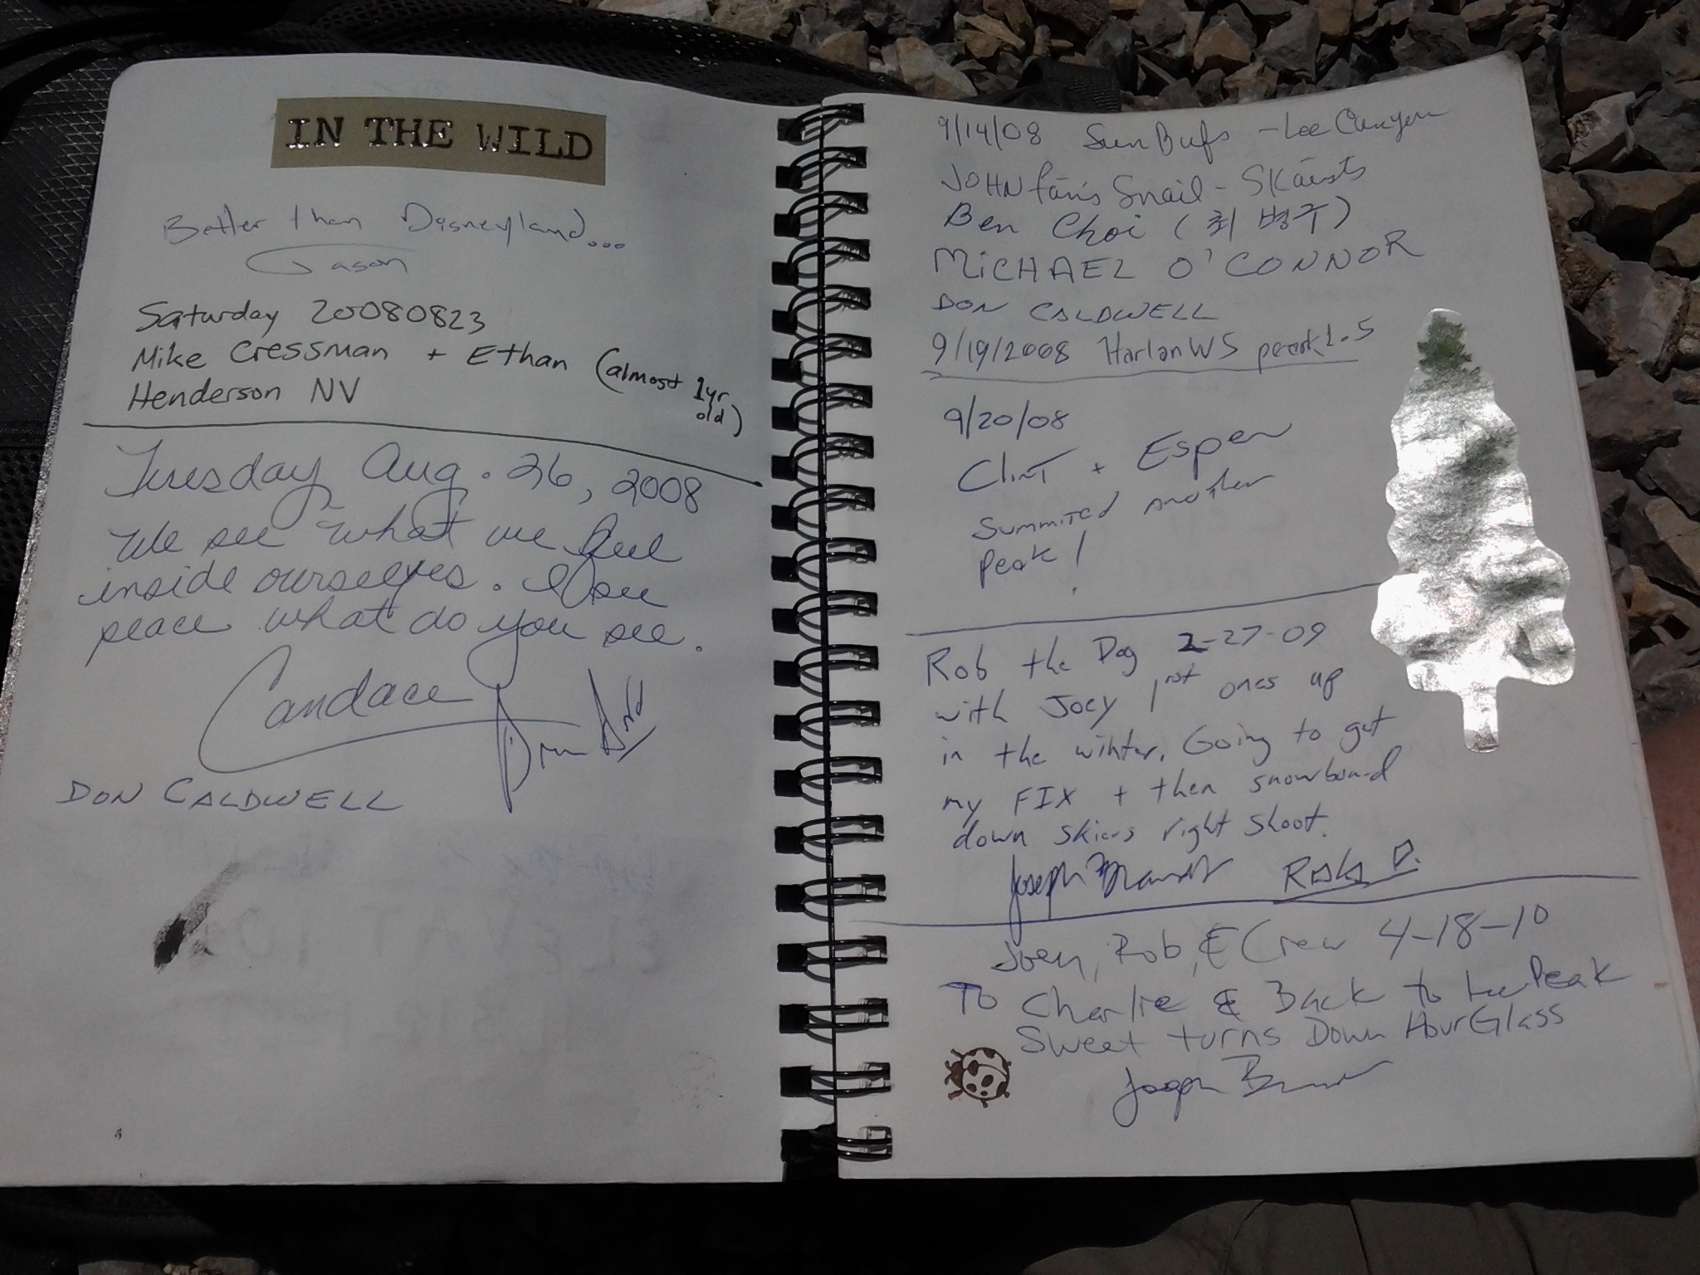 IN THE WILD
Better than Disneyland...
Jason
Saturday 20080823
Mike Cressman + Ethan (almost 1yr old)
Henderson NV
Tuesday Aug. 26, 2008
We see what we feel
inside ourselves. I see
peace what do you see.
Candace
DON CALDWELL
9/14/08 Sun Bufs - Lee Canyon
JOHN Snail -
Ben Choi (최병주)
MICHAEL O'CONNOR
DON CALDWELL
9/19/2008 Harlan WS peak 1.5
9/20/08
Clint + Espen
Summited another
Peak!
Rob the Dog 2-27-09
with Joey 1rst ones up
in the winter. Going to get
my FIX + then snowboard
down skiers right shoot.
Joseph
Joey, Rob, & Crew 4-18-10
To Charlie & Back to Lee Peak
Sweet turns Down HourGlass
Joseph